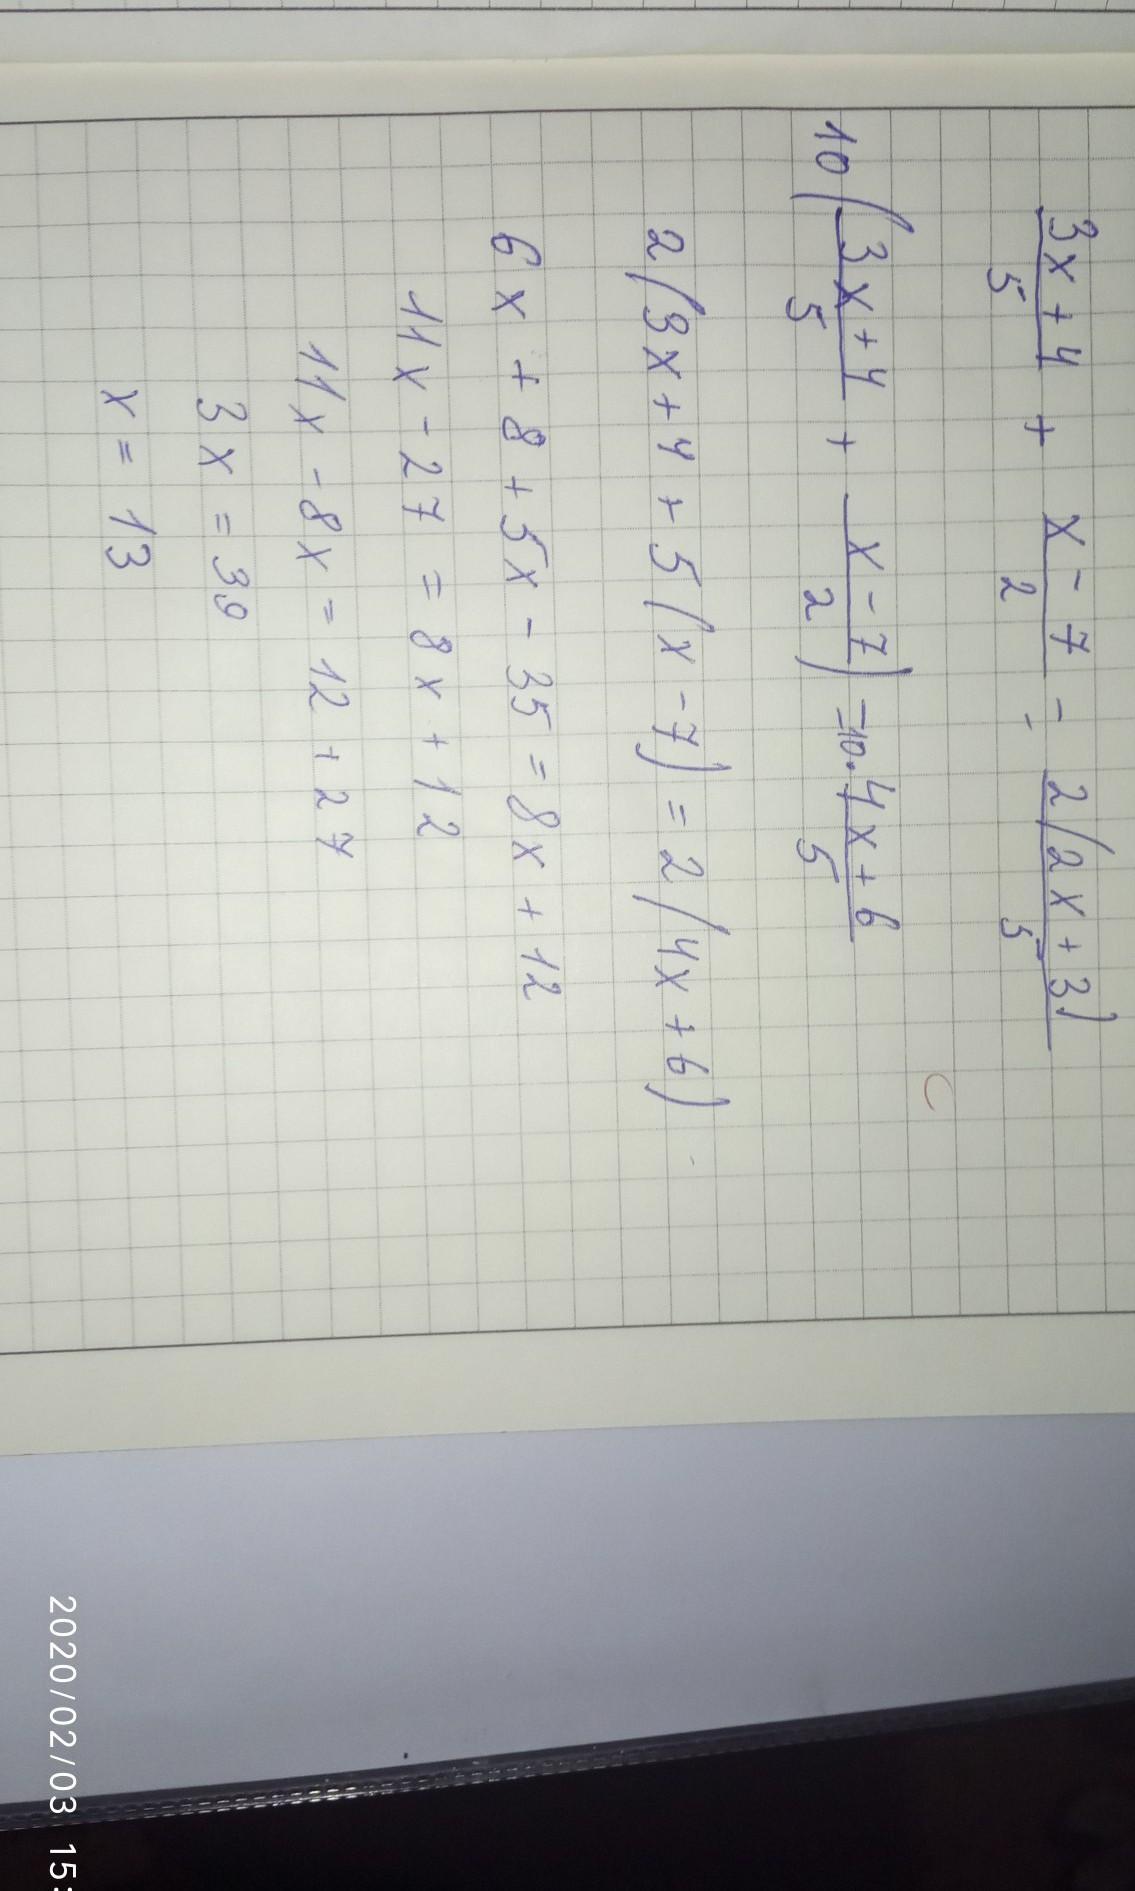 3x+4/5 + x-7/2 = 2(2x+3)/5
10(3x+4/5 + x-7/2) = 10·4x+6/5
2(3x+4+5(x-7) = 2(4x+6)
6x+8+5x-35=8x+12
11x-27=8x+12
11x-8x=12+27
3x=39
x=13
2020/02/03 15: